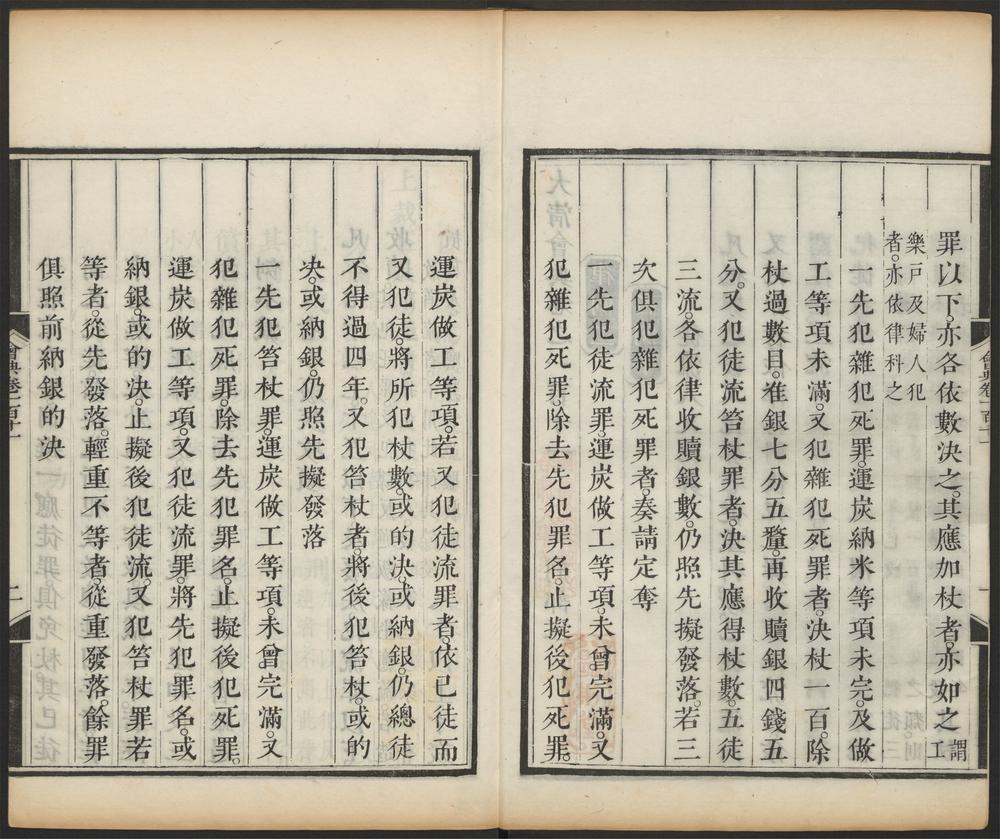 罪以下。亦各依數決之。其應加杖者。亦如之 謂工
樂戶及婦人犯
者。亦依律科之
一先犯雜犯死罪。運炭納米等項未完。及做
工等項未滿。又犯雜犯死罪者。決杖一百。除
杖過數目。准銀七分五釐。再收贖銀四錢五
分。又犯徒流笞杖罪者。決其應得杖數。五徒
三流。各依律收贖銀數。仍照先擬發落。若三
次俱犯雜犯死罪者。奏請定奪
一先犯徒流罪。運炭做工等項。未曾完滿。又
犯雜犯死罪。除去先犯罪名。止擬後犯死罪。
運炭做工等項。若又犯徒流罪者。依已徒而
又犯徒。將所犯杖數。或的決。或納銀。仍總徒
不得過四年。又犯笞杖者。將後犯笞杖。或的
決。或納銀。仍照先擬發落
一先犯笞杖罪。運炭做工等項。未曾完滿。又
犯雜犯死罪。除去先犯罪名。止擬後犯死罪。
運炭做工等項。又犯徒流罪。將先犯罪名。或
納銀。或的決。止擬後犯徒流。又犯笞杖罪若
等者。從先發落。輕重不等者。從重發落。餘罪
俱照前納銀的決
會典卷一百十一
二